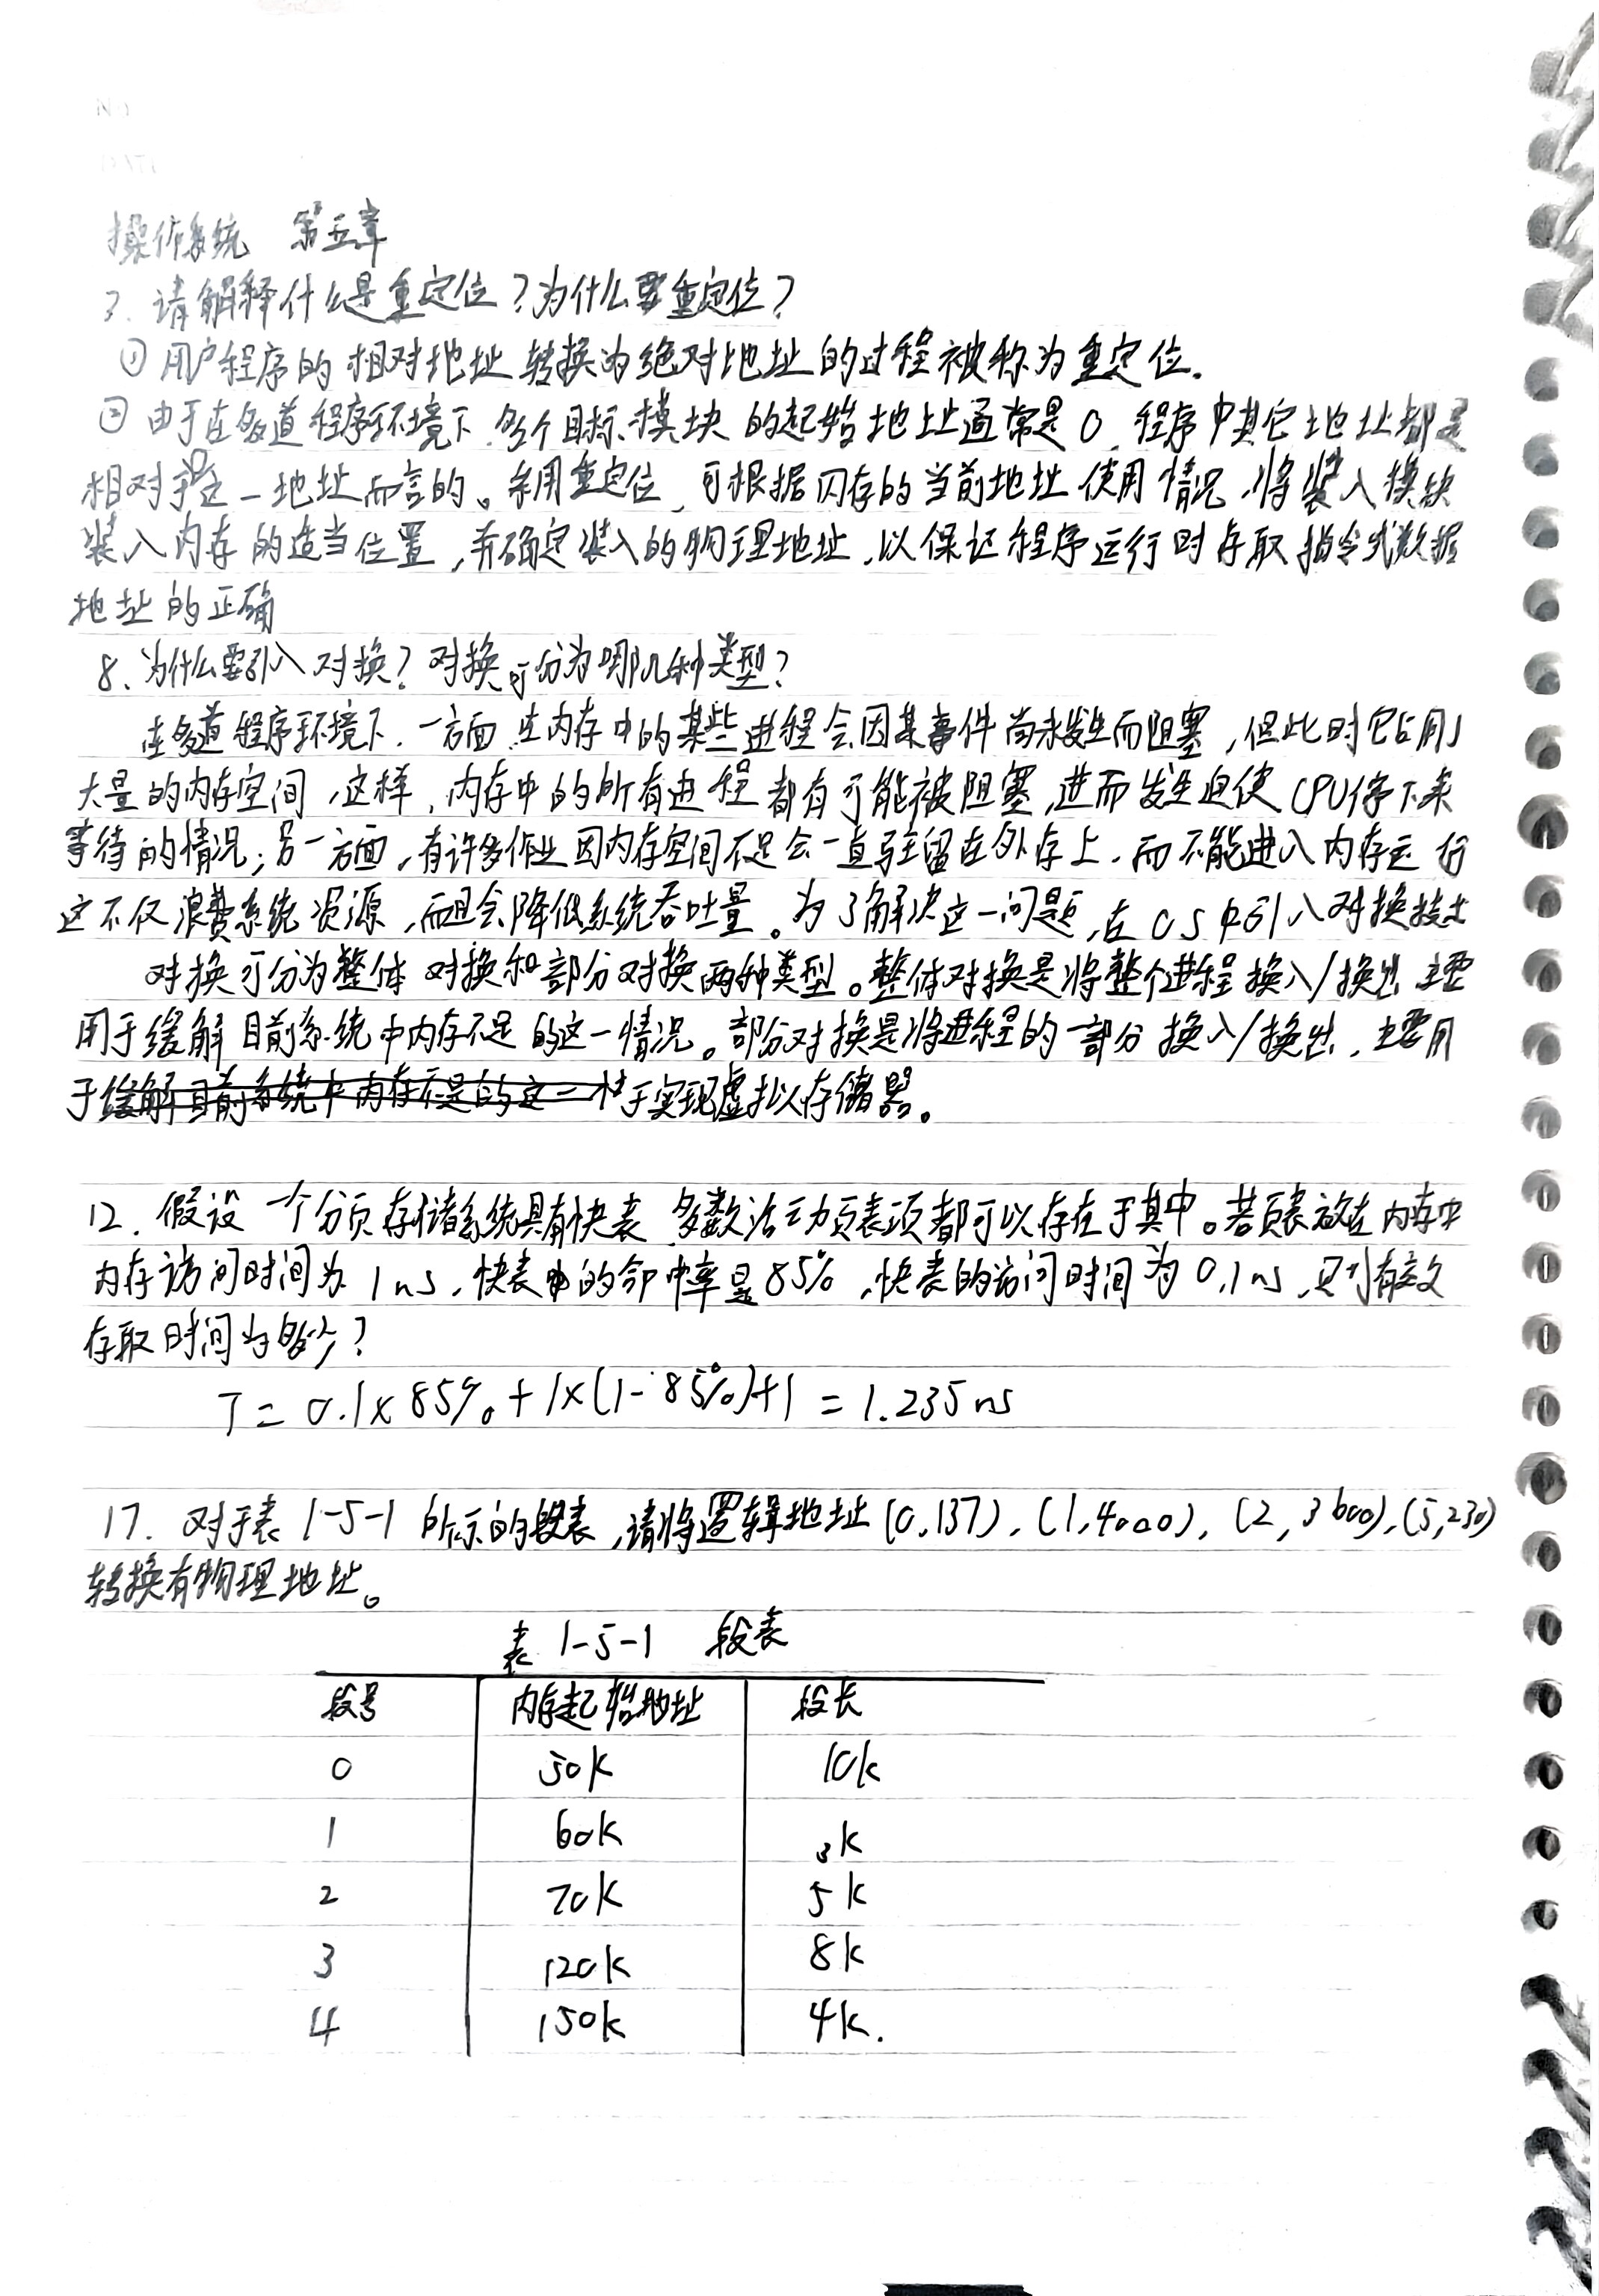 操作系统 第五章
7. 请解释什么是重定位？为什么要重定位？
① 用户程序的相对地址转换为绝对地址的过程被称为重定位.
② 由于在多道程序环境下,各个目标模块的起始地址通常是0,程序中其它地址都是
相对于这一地址而言的。采用重定位,可根据内存的当前地址使用情况,将装入模块
装入内存的适当位置,并确定装入的物理地址,以保证程序运行时存取指令或数据
地址的正确
8、为什么要引入对换？对换可分为哪几种类型？
在多道程序环境下,一方面,在内存中的某些进程会因某事件尚未发生而阻塞,但此时它占用
大量的内存空间,这样,内存中的所有进程都有可能被阻塞,进而发生迫使CPU停下来
等待的情况;另一方面,有许多作业因内存空间不足会一直驻留在外存上,而不能进入内存运行
这不仅浪费系统资源,而且会降低系统吞吐量。为了解决这一问题,在OS中引入对换技术
对换可分为整体对换和部分对换两种类型。整体对换是将整个进程换入/换出,主要
用于缓解目前系统中内存不足的这一情况。部分对换是将进程的一部分换入/换出,主要用
于缓解目前系统中内存不足的这一情于实现虚拟存储器。
12. 假设一个分页存储系统具有快表,多数活动页表项都可以存在于其中。若页表放在内存中
内存访问时间为1ns,快表中的命中率是85%,快表的访问时间为0.1ns,则有效
存取时间为多少？
T = 0.1×85%+1×(1-85%)+1 = 1.235ns
17. 对于表1-5-1所示的段表,请将逻辑地址(0,137),(1,4000),(2,3600),(5,230)
转换有物理地址。
表1-5-1 段表
段号 内存起始地址 段长
0 50K 10K
1 60K 3K
2 70K 5K
3 120K 8K
4 150K 4K.